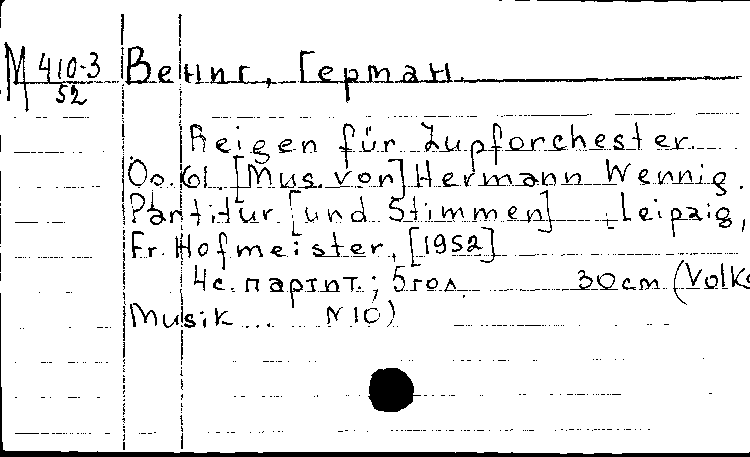 М 410-3
52
Вениг, Герман.
Reigen für Zupforchester.
Op. 61. [Mus. von] Hermann Wennig.
Partitur [und Stimmen] Leipzig,
Fr. Hofmeister, [1952]
4с. партит.; 5 гол. 30 cm (Volks
Musik... N 10)